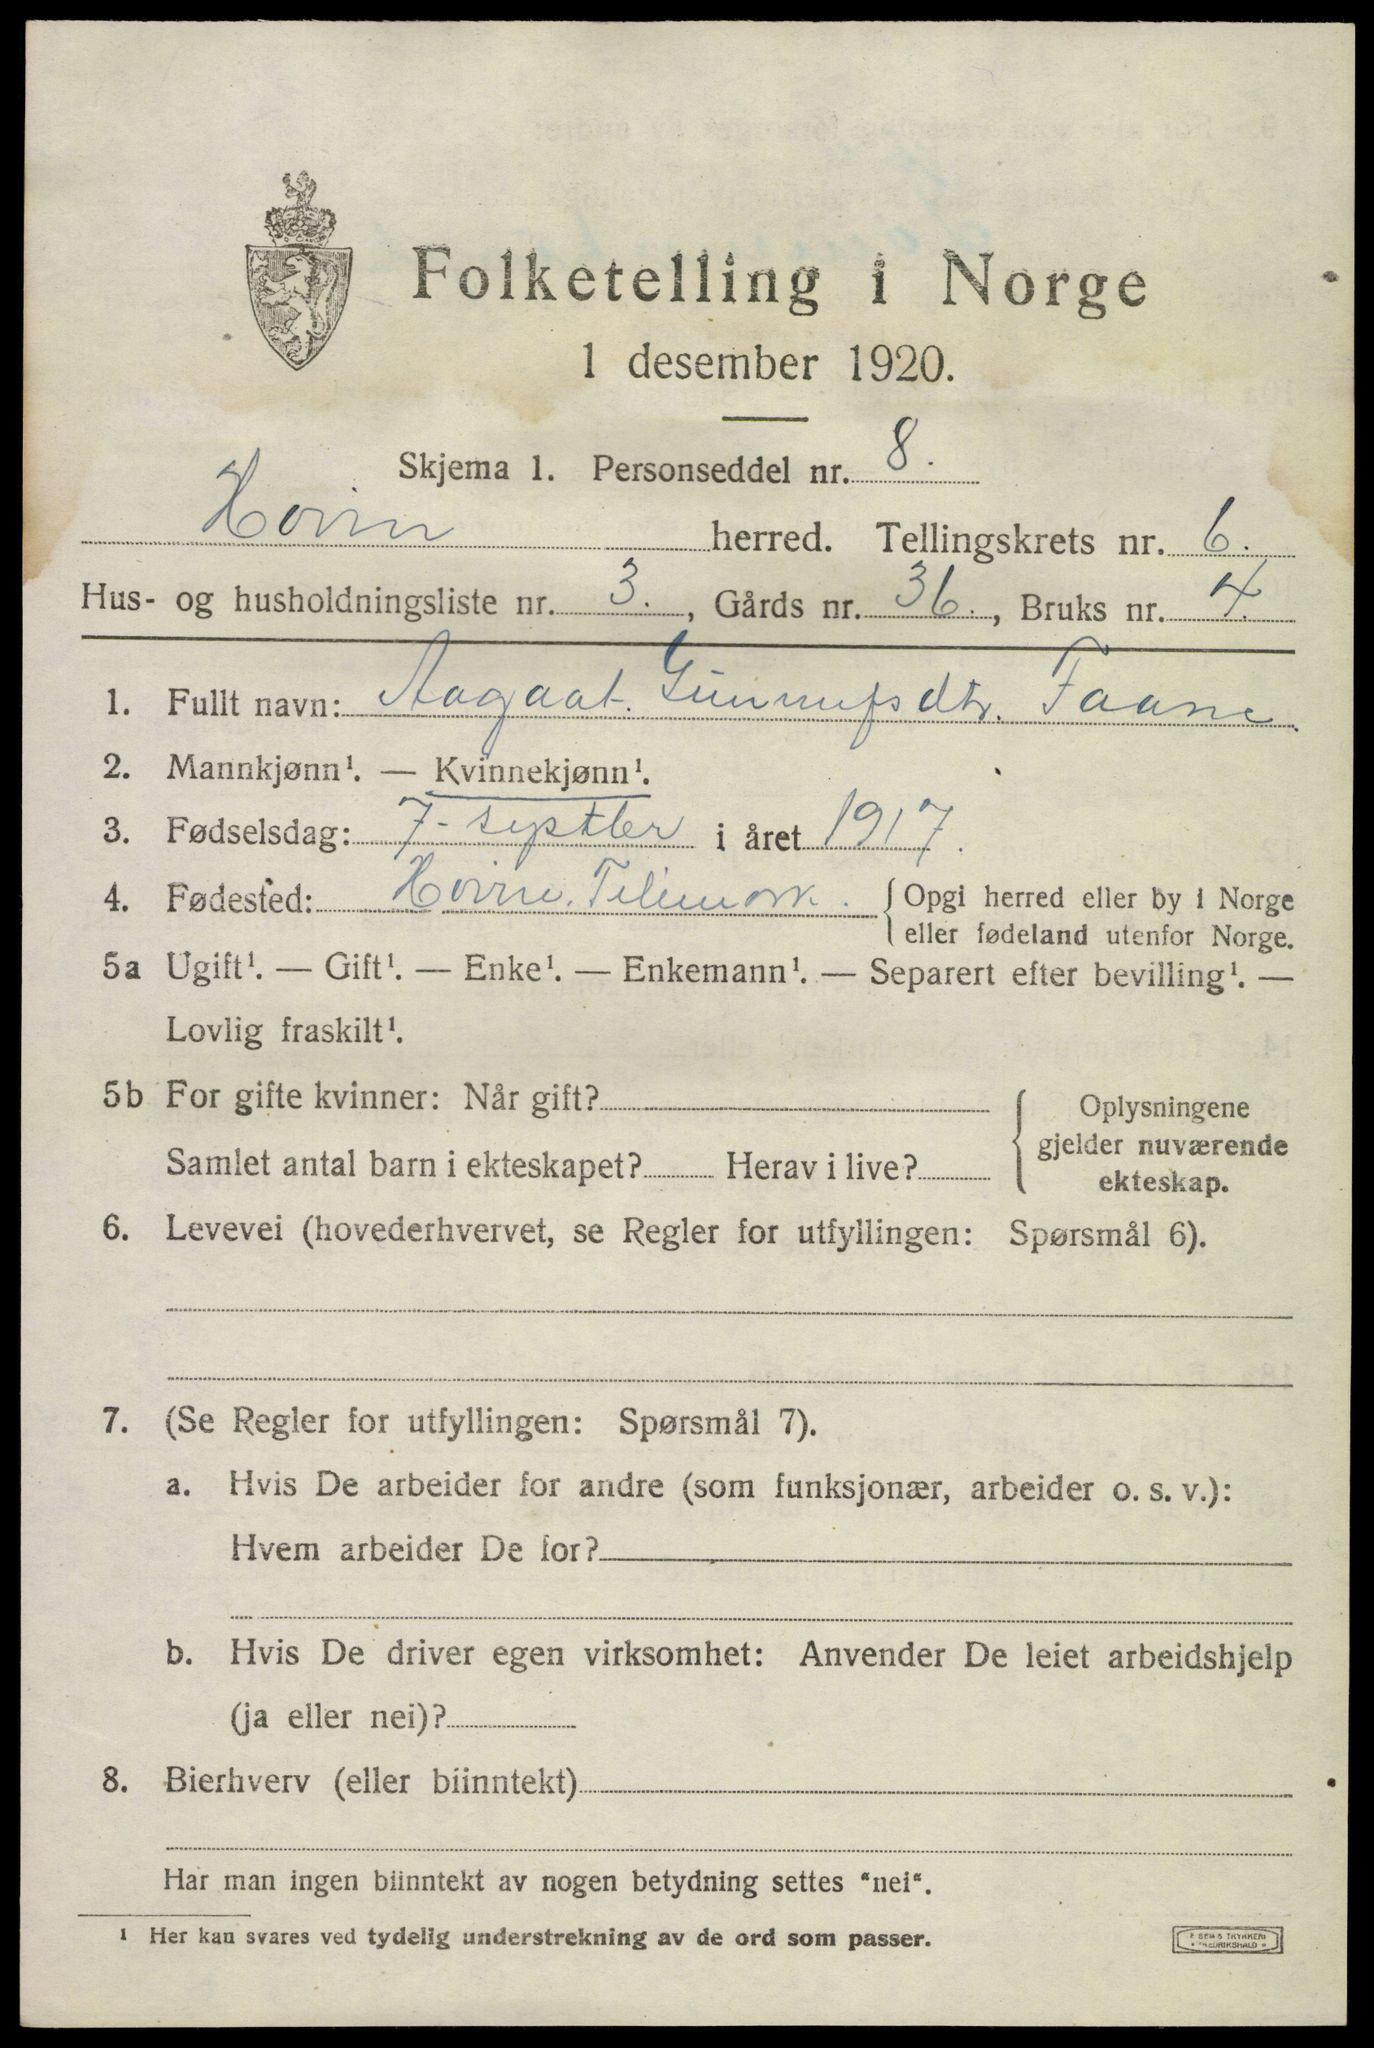 Folketelling i Norge
1 desember 1920.
Skjema 1. Personseddel nr. 8.
Hovin herred. Tellingskrets nr. 6.
Hus- og husholdningsliste nr. 3., Gårds nr. 36., Bruks nr. 4.
1. Fullt navn: Aagaat. Gunnufsdtr. Faane
2. Mannkjønn¹. — Kvinnekjønn¹.
3. Fødselsdag: 7- septbr i året 1917.
4. Fødested: Hovin. Telemark. { Opgi herred eller by i Norge
eller fødeland utenfor Norge.
5a Ugift¹. — Gift¹. — Enke¹. — Enkemann¹. — Separert efter bevilling¹. —
Lovlig fraskilt¹.
5b For gifte kvinner: Når gift?
Samlet antal barn i ekteskapet? Herav i live?
{ Oplysningene
gjelder nuværende
ekteskap.
6. Levevei (hovederhvervet, se Regler for utfyllingen: Spørsmål 6).
7. (Se Regler for utfyllingen: Spørsmål 7).
a. Hvis De arbeider for andre (som funksjonær, arbeider o. s. v.):
Hvem arbeider De for?
b. Hvis De driver egen virksomhet: Anvender De leiet arbeidshjelp
(ja eller nei)?
8. Bierhverv (eller biinntekt)
Har man ingen biinntekt av nogen betydning settes "nei".
¹ Her kan svares ved tydelig understrekning av de ord som passer.
E SEMS TRYKKERI
FREDRIKSHALD